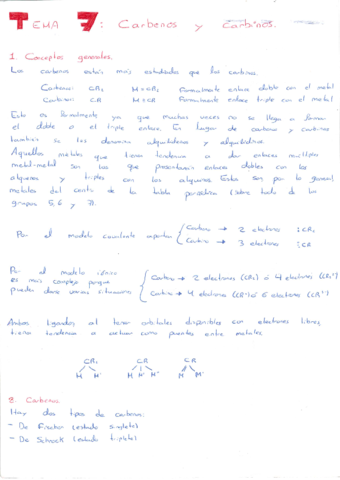 TEMA 7: Carbenos y Carbinos.
1. Conceptos generales.
Los carbenos están más estudiados que los carbinos.
Carbeno: CR₂ M=CR₂ Formalmente enlace doble con el metal
Carbino: CR M≡CR Formalmente enlace triple con el metal
Esto es formalmente ya que muchas veces no se llega a formar
el doble o el triple enlace. En lugar de carbeno y carbino
también se les denomina alquilideno y alquilidino.
Aquellos metales que tienen tendencia a dar enlaces múltiples
metal-metal son los que presentarán enlaces dobles con los
y triples con los Estos son por lo general
metales del centro de la tabla periódica (sobre todo de los
grupos 5, 6 y 7).
Por el modelo covalente aportan
Carbeno → 2 electrones :CR₂
Carbino → 3 electrones :CR
Por el modelo iónico
es más complejo porque
pueden darse varias situaciones
Carbeno → 2 electrones (CR₂) ó 4 electrones (CR₂²⁻)
Carbino → 4 electrones (CR⁻) ó 6 electrones (CR³⁻)
Ambos ligandos al tener orbitales disponibles con electrones libres,
tienen tendencia a actuar como puentes entre metales.
CR₂ CR CR
M M' M M' M'' M M'
2. Carbenos
Hay dos tipos de carbenos:
- De Fischer (estado singlete)
- De Schrock (estado triplete)